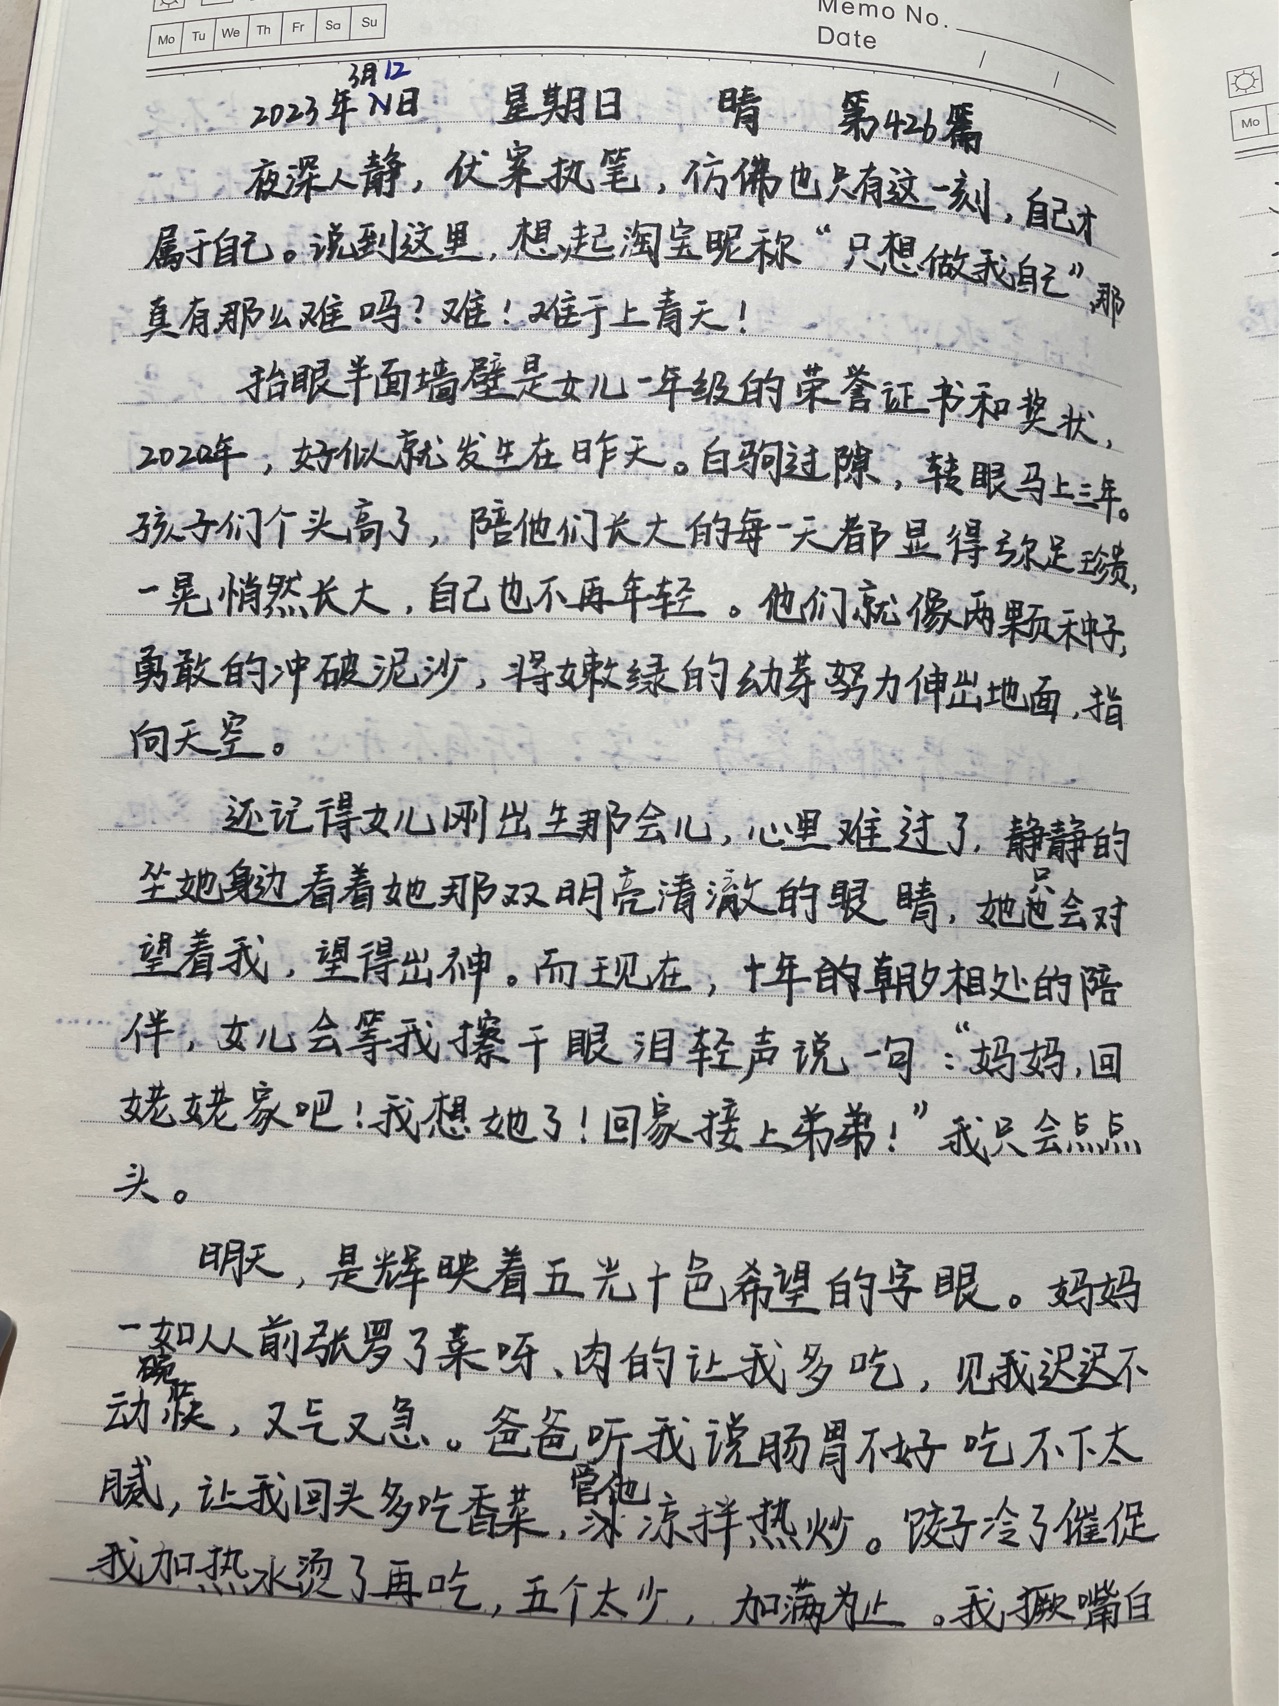 Mo Tu We Th Fr Sa Su
Memo No.
Date
Mo
3月12
2023年 日 星期日 晴 第426篇
夜深人静，伏案执笔，仿佛也只有这一刻，自己才
属于自己。说到这里，想起淘宝昵称“只想做我自己”，那
真有那么难吗？难！难于上青天！
抬眼半面墙壁是女儿一年级的荣誉证书和奖状，
2020年，好似就发生在昨天。白驹过隙，转眼马上三年。
孩子们个头高了，陪他们长大的每一天都显得弥足珍贵，
一晃悄然长大，自己也不再年轻。他们就像两颗种子，
勇敢的冲破泥沙，将嫩绿的幼芽努力伸出地面，指
向天空。
还记得女儿刚出生那会儿，心里难过了，静静的
坐她身边看着她那双明亮清澈的眼睛，她也只会对
望着我，望得出神。而现在，十年的朝夕相处的陪
伴，女儿会等我擦干眼泪轻声说一句：“妈妈，回
姥姥家吧！我想她了！回家接上弟弟！”我只会点点
头。
明天，是辉映着五光十色希望的字眼。妈妈
一如从前张罗了菜呀、肉的让我多吃，见我迟迟不
动碗筷，又气又急。爸爸听我说肠胃不好吃不下太
腻，让我回头多吃香菜，管他凉拌热炒。饺子冷了催促
我加热水烫了再吃，五个太少，加满为止。我撅嘴白